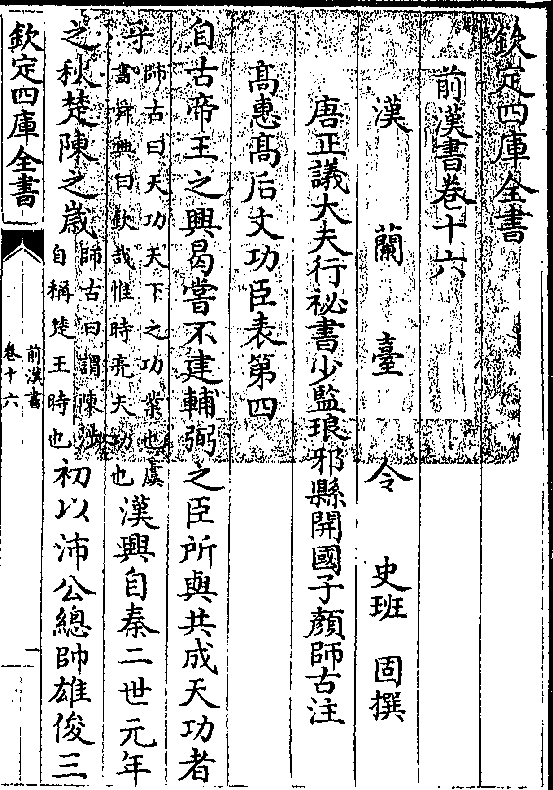 欽定四庫全書
前漢書卷十六
漢蘭臺令史班固撰
唐正議大夫行祕書少監琅邪縣開國子顏師古注
髙惠髙后文功臣表第四
自古帝王之興曷嘗不建輔弼之臣所與共成天功者
乎師古曰天功天下之功業也虞書舜典曰欽哉惟時亮天功也漢興自秦二世元年
之秋楚陳之歲師古曰謂陳涉自稱楚王時也初以沛公總帥雄俊三
欽定四庫全書
前漢書
卷十六
一